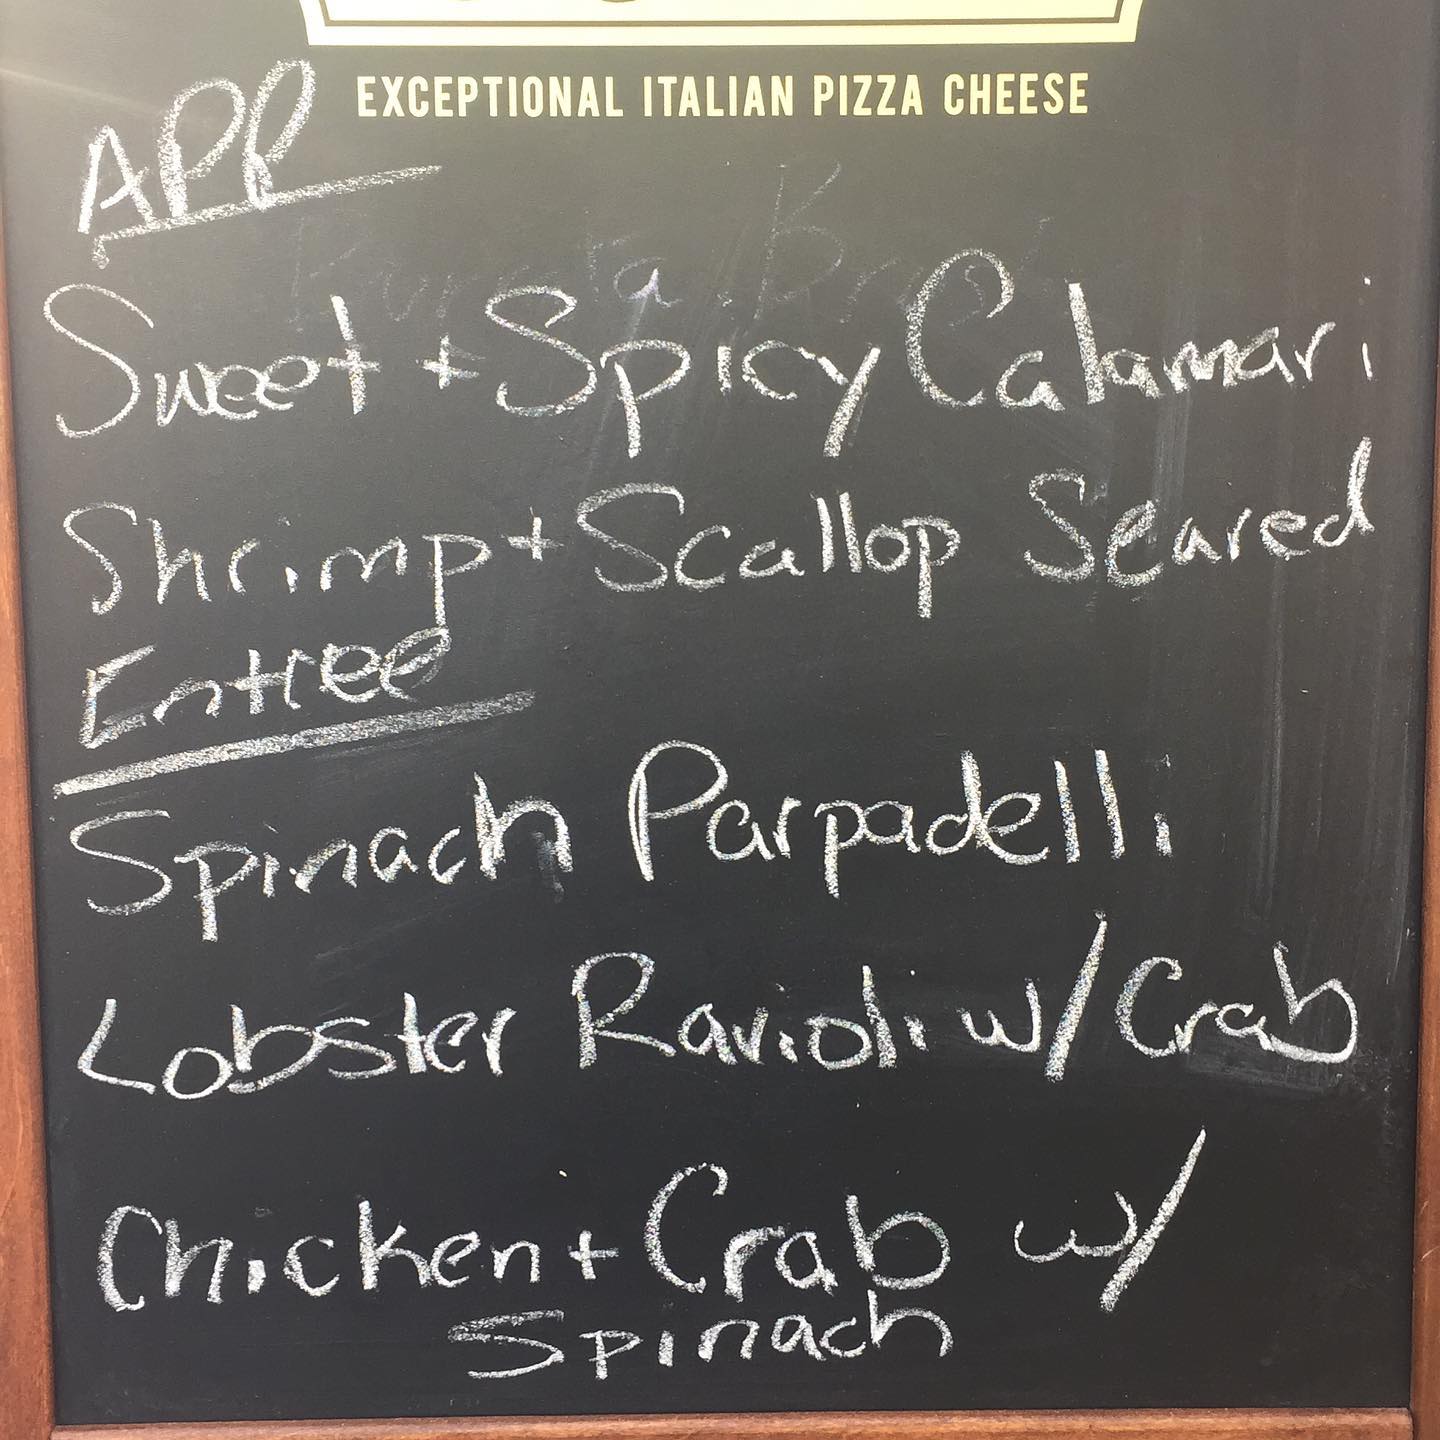 EXCEPTIONAL ITALIAN PIZZA CHEESE
APP
Sweet + Spicy Calamari
Shrimp + Scallop Seared
Entree
Spinach Parpadelli
Lobster Ravioli w/ Crab
Chicken + Crab w/
Spinach